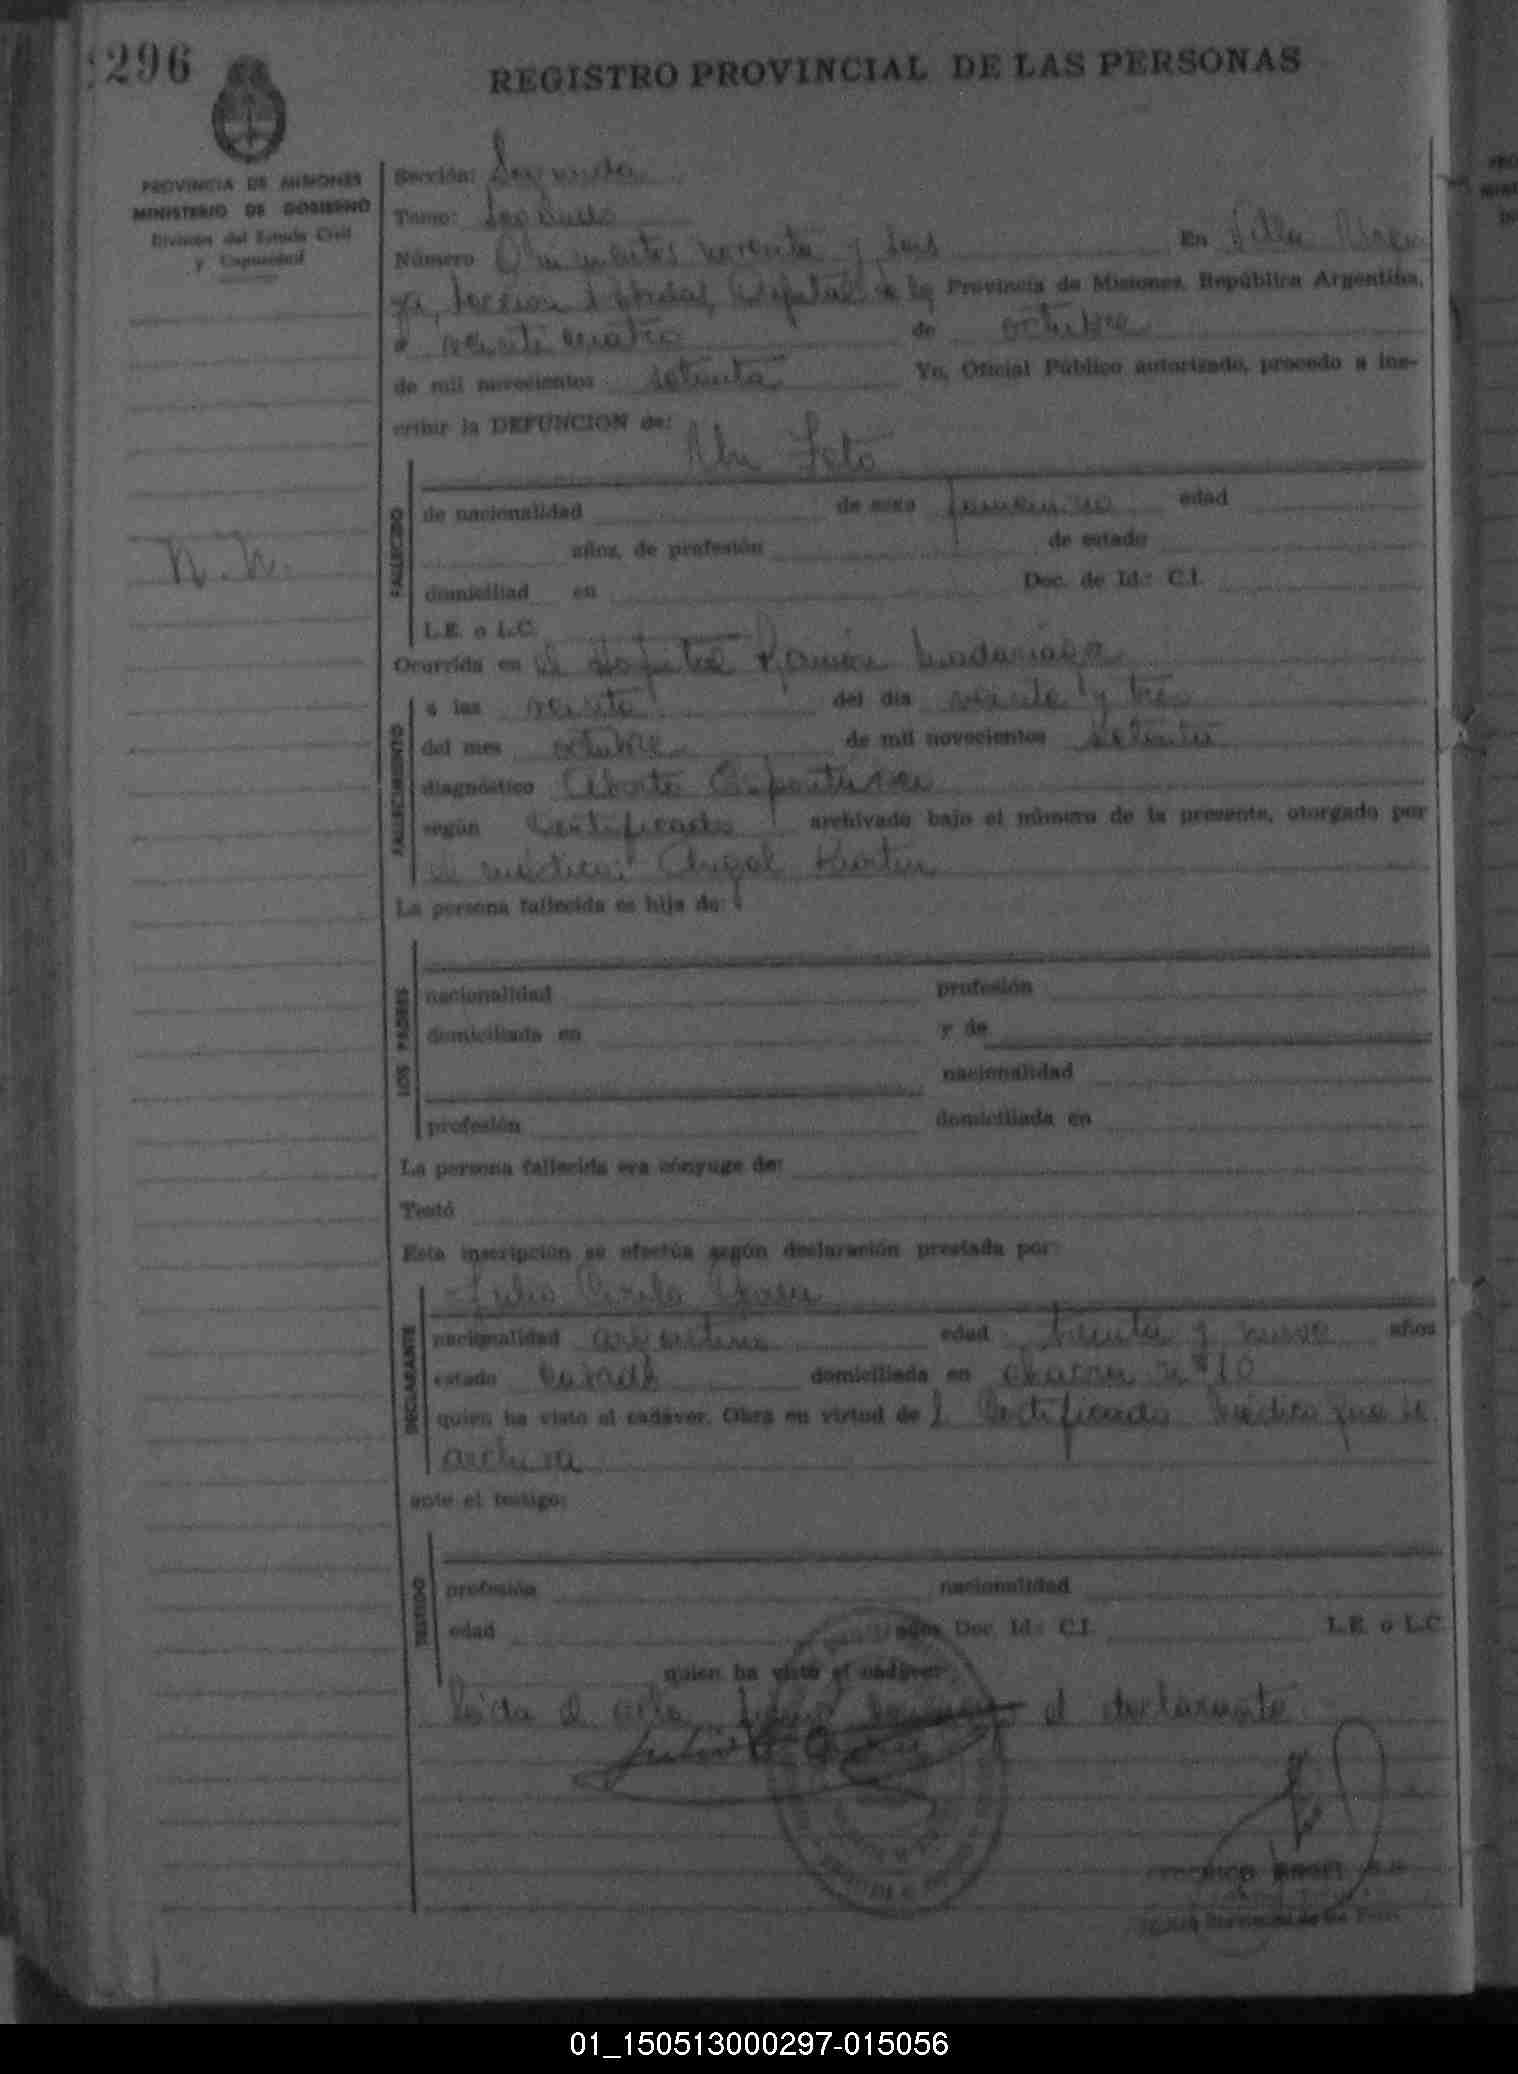 296
REGISTRO PROVINCIAL DE LAS PERSONAS
PROVINCIA DE MISIONES
MINISTERIO DE GOBIERNO
División del Estado Civil
y Capacidad
Sección: Segunda
Tomo: Segundo
Número Quinientos noventa y seis En Villa
Provincia de Misiones, República Argentina,
a veinticuatro de octubre
de mil novecientos setenta Yo, Oficial Público autorizado, procedo a ins-
cribir la DEFUNCION de:
Un Feto
FALLECIDO
de nacionalidad de sexo femenino edad
años, de profesión de estado
N.N.
domiciliad en Doc. de Id.: C.I.
L.E. o L.C.
Ocurrida en el Hospital Ramón Madariaga
FALLECIMIENTO
a las veinte del día veinte y tres
del mes octubre de mil novecientos setenta
diagnóstico Aborto Espontaneo
según Certificado archivado bajo el número de la presente, otorgado por
el médico: Angel
La persona fallecida es hija de:
LOS PADRES
nacionalidad profesión
domiciliada en y de
nacionalidad
profesión domiciliada en
La persona fallecida era cónyuge de:
Testó
Esta inscripción se efectúa según declaración prestada por:
Julio Cirilo
DECLARANTE
nacionalidad argentina edad treinta y nueve años
estado casado domiciliada en chacra nº 10
quien ha visto el cadáver. Obra en virtud de l Certificado Médico que se
archiva
ante el testigo:
TESTIGO
profesión nacionalidad
edad años Doc. Id.: C.I. L.E. o L.C.
quien ha visto el cadáver
Leida el acta firma el declarante
01_150513000297-015056